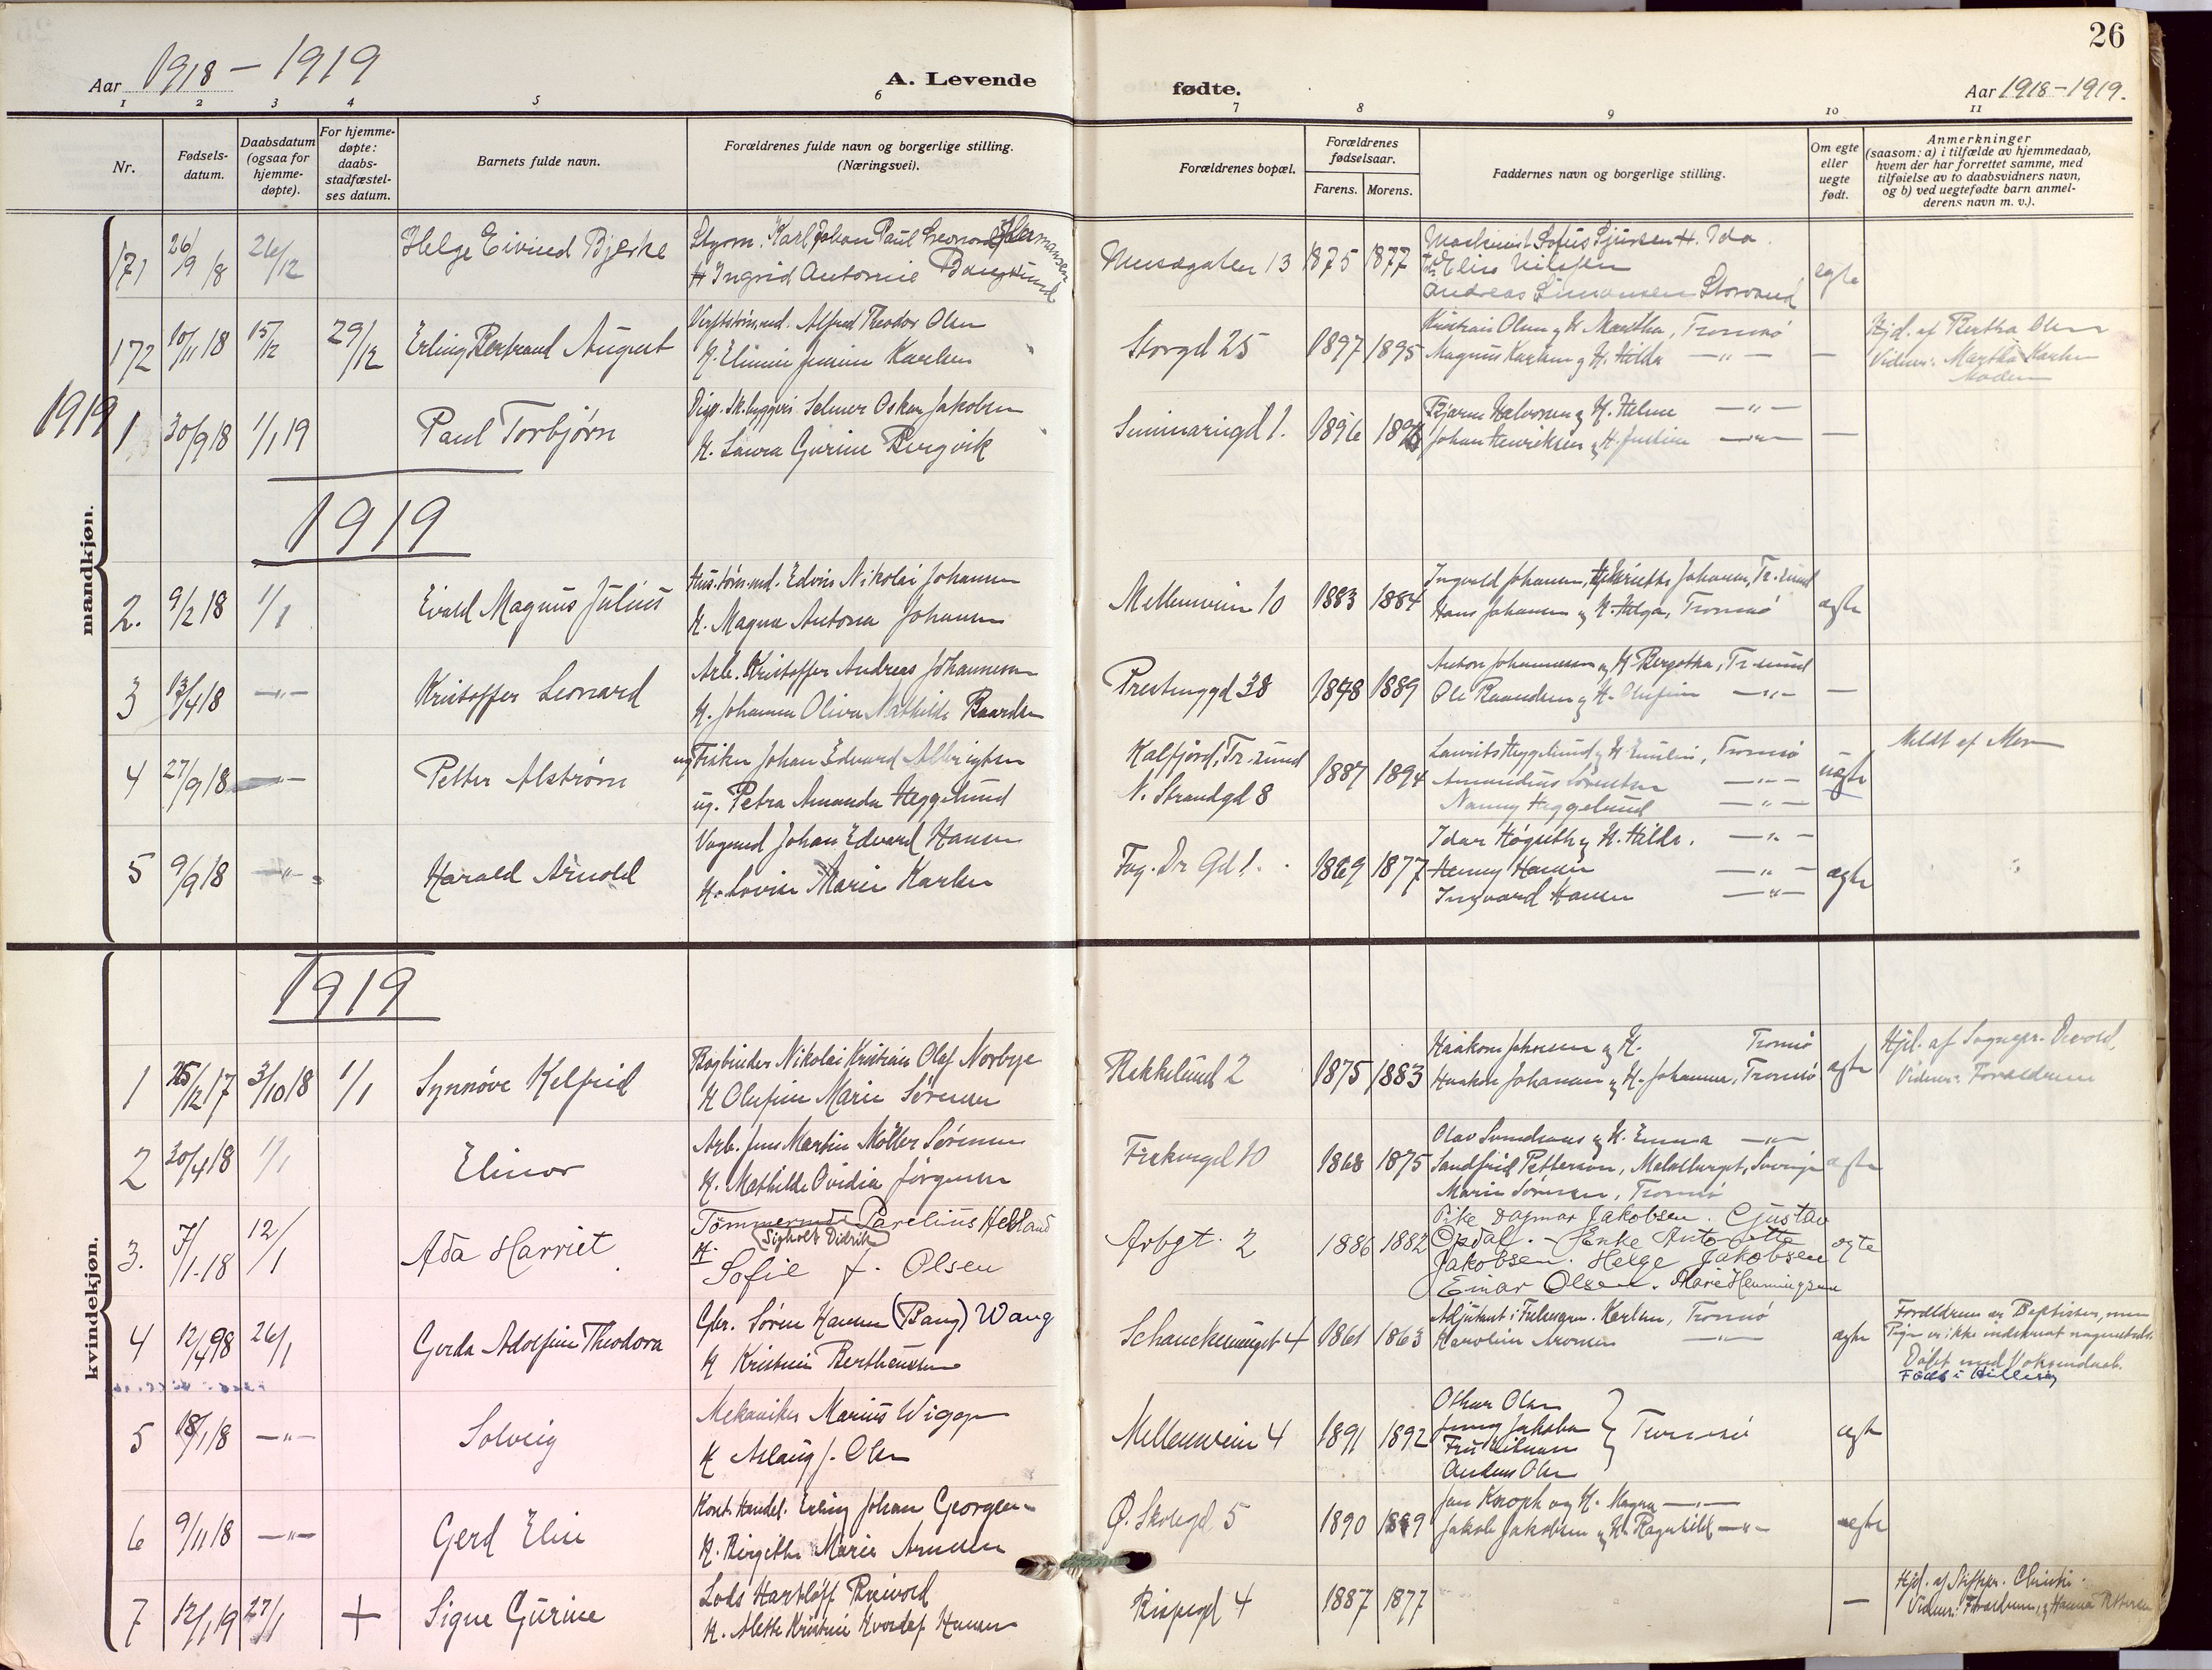 26
Aar 1918 - 1919
A. Levende
fødte.
Aar 1918-1919.
1 2 3 4 5 6 7 8 9 10 11
Nr.
Fødsels-
datum.
Daabsdatum
(ogsaa for
hjemme-
døpte).
For hjemme-
døpte:
daabs-
stadfæstel-
ses datum.
Barnets fulde navn.
Forældrenes fulde navn og borgerlige stilling.
(Næringsvei).
Forældrenes bopæl.
Forældrenes
fødselsaar.
Farens. Morens.
Faddernes navn og borgerlige stilling.
Om egte
eller
uegte
født.
Anmerkninger
(saasom: a) i tilfælde av hjemmedaab,
hvem der har forrettet samme, med
tilføielse av to daabsvidners navn,
og b) ved uegtefødte barn anmel-
derens navn m. v.).
mandkjøn.
171 26/9 18 26/12 Helge Eivind Bjerke
Styrm. Karl Johan Paul Hermansen
H Ingrid Antonie
1875 1877
Sofus Sjursen H. Ida
Andreas Simonsen Storvand
egte
172 10/11 18 15/12 29/12 Erling Bertrand August
Alfred Theodor Olsen
H. Karlsen
Storgd 25 1897 1895
Kristian Olsen og H. Martha, Tromsø
Magnus Karlsen og H. Hilda —"—
—
Hjd. af Bertha Olsen
Vidner: Martha Karlsen
Moderen
1919
1 30/9 18 1/1 19 Paul Torbjørn
Selmer Oskar Jakobsen
H. Laura Gurine Bergvik
Seminarigd 1. 1896
Bjarne Halvorsen og H. Helene —"—
Johan Henriksen og H. Justine —"—
—
1919
2. 9/2 18 1/1 Evald Magnus Julius
Edvin Nikolai Johansen
H. Magna Antona Johansen
Mellemveien 10 1883 1884
Ingvald Johansen, Johansen, Tr.sund
Hans Johansen og H. Helga, Tromsø
ægte
3 13/4 18 —"— Kristoffer Leonard
Arb. Kristoffer Andreas Johannesen
H. Johanna Oliva Mathilde Baardsen
Prestenggd 38 1889
Anton Johannesen og H. Bergetha, Tr-sund
Ole og H. Olufine —"—
—
4 27/9 18 —"— Petter Alstrøm
ug Fisker Johan Edvard Albrigtsen
ug. Petra Amanda Heggelund
Kalfjord, Tr-sund
N. Strandgd 8
1887 1894
Laurits Heggelund og H Emilie, Tromsø
Amandus Sørensen —"—
Nanny Heggelund —"—
uægte
Meldt af Mor
5 9/9 18 —"— Harald Arnold
Vognmd Johan Edvard Hansen
H. Lovise Marie Karlsen
Fog. Dr Gd 1. 1869 1877
Idar Høgseth og H. Hilda. —"—
Henny Hansen —"—
Ingvard Hansen —"—
ægte
kvindekjøn.
1919
1 25/12 17 3/10 18 1/1 Synnöve Kelfrid
Bogbinder Nikolai Kristian Olaf Norbye
H Olufine Marie Sørensen
Rekkelund 2 1875 1883
Haakon Johnsen og H. Tromsø
Haakon Johansen og H. Johanna, Tromsø
ægte
Hjd. af Sognepr. Devold,
Vidner: Forældrene
2 30/4 18 1/1 Elinor
Arb. Jens Martin Möller Sørensen
H. Mathilde Ovidia Jörgensen
Fiskergd 10 1868 1875
Olav og H. Emma —"—
Sandfrid Petterson, Sverige
Marie Sørensen, Tromsø
ægte
3. 7/1-18 12/1 Ada Harriet
Tömmermd. Parelius Helland
Sigholt Didrik
H.
Sofie J. Olsen
Arbgt. 2 1886 1882
Pike Dagmar Jakobsen. Gjustav
Opdal. - Enke Antonette
Jakobsen. Helge Jakobsen
Einar Olsen. Marie Henningsen
egte
4 12/4 98 26/1 Gerda Adolfine Theodora
Gbr. Søren Hansen (Bang) Wang
H Kristine Bertheussen
4 1861 1863
Adjutant i Frelsesarm. Karlsen, Tromsø
Karoline Aronsen —"—
ægte
Forældrene er Baptister, men
Pigen er ikke indskrevet nogensteds
Døbt med Voksendaab.
Født i Hillesøy
5 18/1 18 —"— Solveig
Mekaniker Marius Wigger
H Aslaug J. Olsen
Mellemveien 4 1891 1892
Othar Olsen
Jenny Jakobsen
Anders Olsen
Tromsø
ægte
6 9/11 18 —"— Gerd Elin
Erling Johan Georgsen
H. Birgithe Marie Arnesen
Q. Skolegd 5 1890 1889
Jens Knoph og H. Magna —"—
Jakob Jakobsen og H. Ragnhild —"—
ægte
7 12/1 19 27/1 + Signe Gurine
Lods Hartløff Breivold
H. Alette Kristine Hansen
Bispegd 4 1887 1877
—
Hjd. af Stiftspr. Christie.
Vidner: Forældrene, og Hanna Pettersen